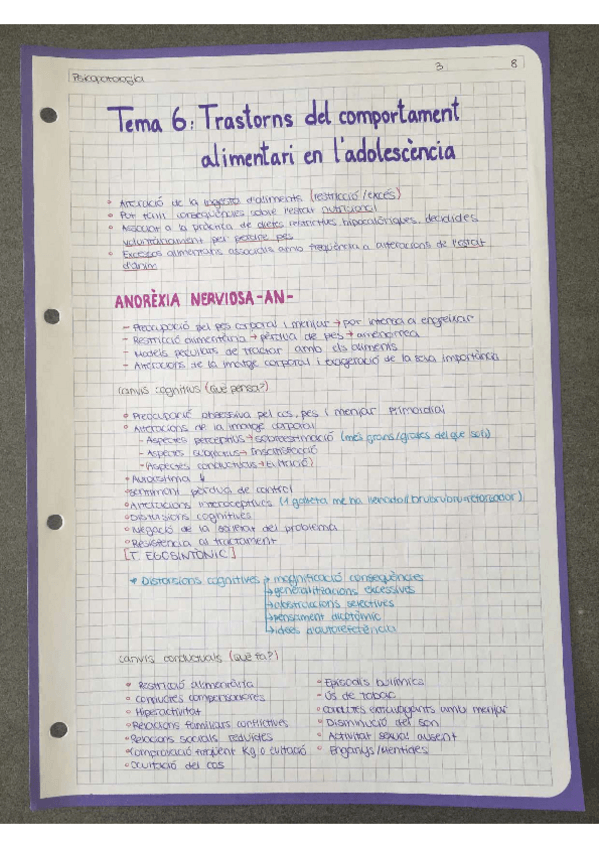 Psicopatologia
3 8
Tema 6: Trastorns del comportament
alimentari en l'adolescència
• Alteració de la ingesta d'aliments (restricció/excés)
• Per tant conseqüències sobre l'estat nutricional
• Associat a la pràctica de dietes restrictives hipocalòriques, decidides
voluntàriament per perdre pes
• Excessos alimentaris associats amb freqüència a alteracions de l'estat
d'ànim
ANORÈXIA NERVIOSA -AN-
- Preocupació pel pes corporal i menjar → por intensa a engreixar
- Restricció alimentària → pèrdua de pes → amenorrea
- Models peculiars de tractar amb els aliments
- Alteracions de la imatge corporal i exageració de la seva importància
canvis cognitius (Què pensa?)
• Preocupació obsessiva pel cos, pes i menjar Primordial
• Alteracions de la imatge corporal
- Aspectes perceptius → sobreestimació (més grans/grosses del que són)
- Aspectes subjectius → Insatisfacció
- (Aspectes conductuals → Evitació)
• Autoestima ↓
• Sentiment pèrdua de control
• Alteracions interoceptives (1 galleta me ha llenado
• Distorsions cognitives
• Negació de la gravetat del problema
• Resistència al tractament
[T. EGOSINTÒNIC]
* Distorsions cognitives → magnificació conseqüències
→ generalitzacions excessives
→ abstraccions selectives
→ pensament dicotòmic
→ idees d'autoreferència
canvis conductuals (què fa?)
• Restricció alimentària
• conductes compensatòries
• Hiperactivitat
• Relacions familiars conflictives
• Relacions socials reduïdes
• Comprovació freqüent Kg o evitació
• Ocultació del cos
- Episodis bulímics
- Ús de tabac
• conductes extravagants amb menjar
• Disminució del son
• Activitat sexual absent
• Enganys/Mentides